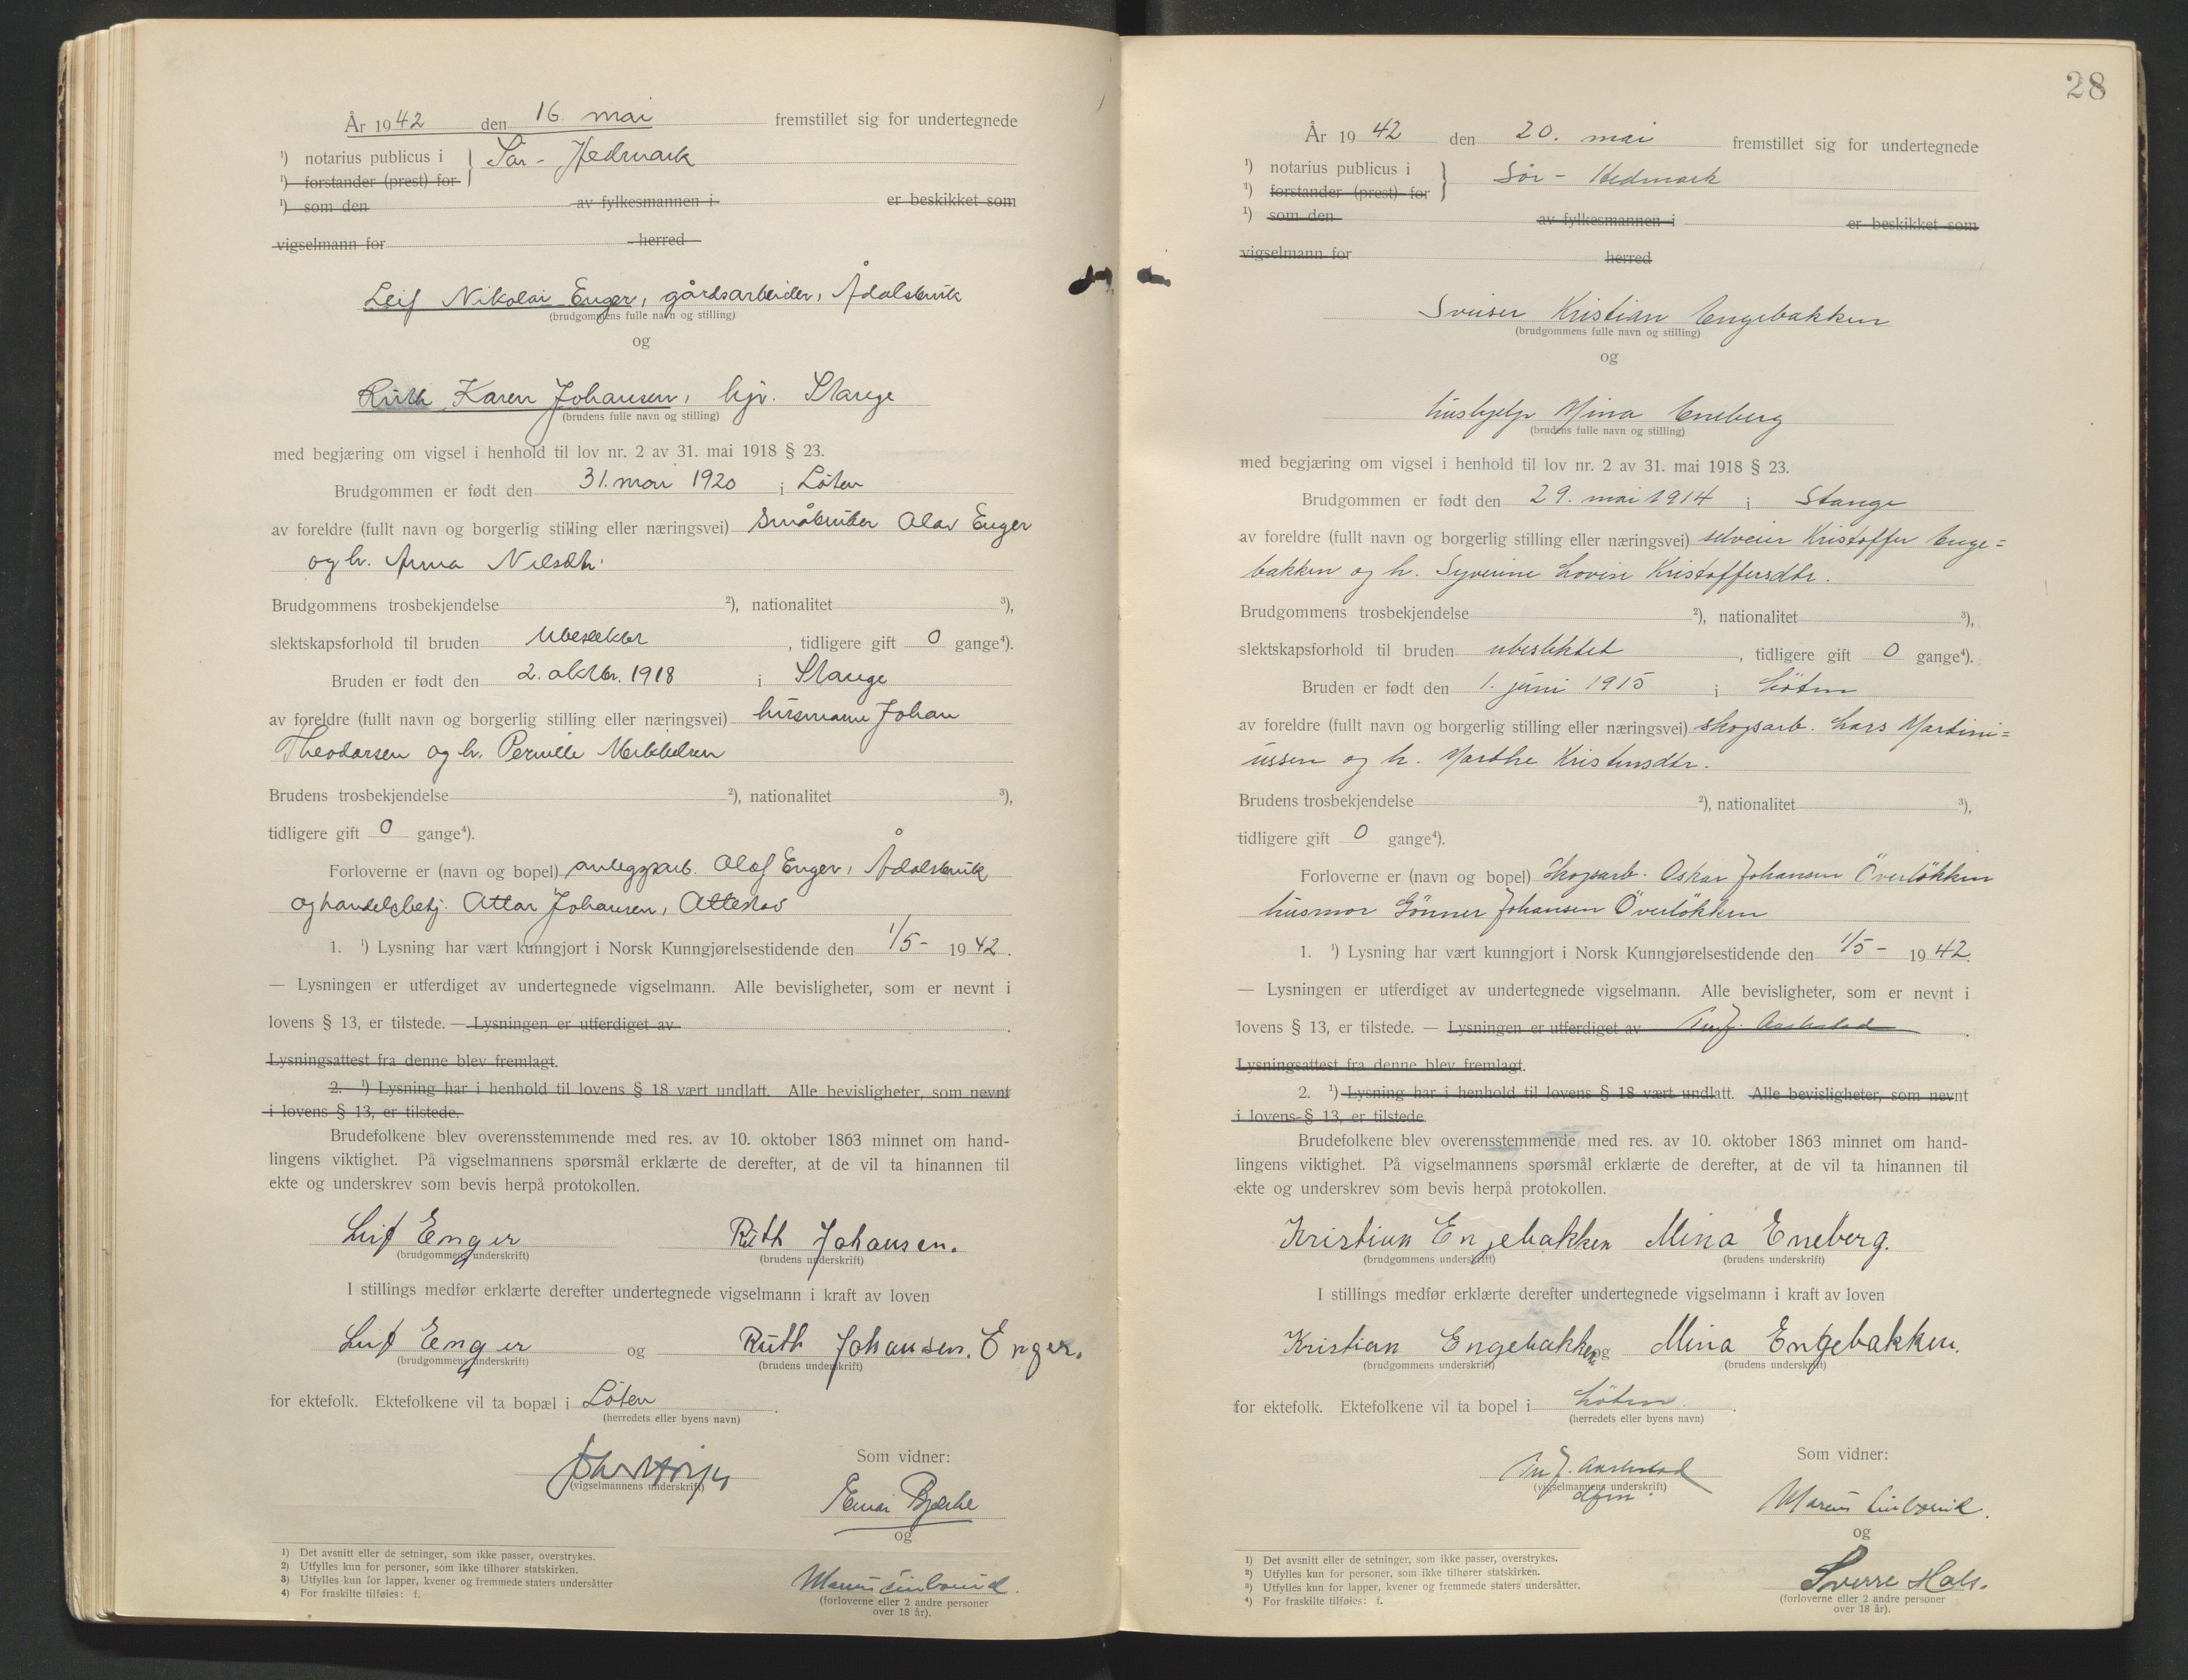 År 1942 den 16. mai fremstillet sig for undertegnede
¹) notarius publicus i } Sør-Hedmark
¹) forstander (prest) for
¹) som den av fylkesmannen i er beskikket som
vigselmann for herred
Leif Nikolai Enger, gårdsarbeider, Ådalsbruk
(brudgommens fulle navn og stilling)
og
Ruth Karen Johansen, hjv. Stange
(brudens fulle navn og stilling)
med begjæring om vigsel i henhold til lov nr. 2 av 31. mai 1918 § 23.
Brudgommen er født den 31. mai 1920 i Löten
av foreldre (fullt navn og borgerlig stilling eller næringsvei) småbruker Olav Enger
og h. Anna Nilsdtr.
Brudgommens trosbekjendelse ²), nationalitet ³),
slektskapsforhold til bruden ubeslektet, tidligere gift 0 gange⁴).
Bruden er født den 2. oktbr. 1918 i Stange
av foreldre (fullt navn og borgerlig stilling eller næringsvei) husmann Johan
Theodorsen og h. Pernille Mikkelsen
Brudens trosbekjendelse ²), nationalitet ³),
tidligere gift 0 gange⁴).
Forloverne er (navn og bopel) anleggsarb. Olaf Enger, Ådalsbruk
og handelsbetj. Attar Johansen,
1. ¹) Lysning har vært kunngjort i Norsk Kunngjørelsestidende den 1/5- 1942.
— Lysningen er utferdiget av undertegnede vigselmann. Alle bevisligheter, som er nevnt i
lovens § 13, er tilstede. — Lysningen er utferdiget av .
Lysningsattest fra denne blev fremlagt.
2. ¹) Lysning har i henhold til lovens § 18 vært undlatt. Alle bevisligheter, som nevnt
i lovens § 13, er tilstede.
Brudefolkene blev overensstemmende med res. av 10. oktober 1863 minnet om hand-
lingens viktighet. På vigselmannens spørsmål erklærte de derefter, at de vil ta hinannen til
ekte og underskrev som bevis herpå protokollen.
Leif Enger Ruth Johansen.
(brudgommens underskrift) (brudens underskrift)
I stillings medfør erklærte derefter undertegnede vigselmann i kraft av loven
Leif Enger og Ruth Johansen. Enger.
(brudgommens underskrift) (brudens underskrift)
for ektefolk. Ektefolkene vil ta bopæl i Löten.
(herredets eller byens navn)
Som vidner:
(vigselmannens underskrift)
og
Marius
(forloverne eller 2 andre personer
over 18 år).
¹) Det avsnitt eller de setninger, som ikke passer, overstrykes.
²) Utfylles kun for personer, som ikke tilhører statskirken.
³) Utfylles kun for lapper, kvener og fremmede staters undersåtter
⁴) For fraskilte tilføies: f.
28
År 1942 den 20. mai fremstillet sig for undertegnede
¹) notarius publicus i } Sör-Hedmark
¹) forstander (prest) for
¹) som den av fylkesmannen i er beskikket som
vigselmann for herred
Sveiser Kristian Engebakken
(brudgommens fulle navn og stilling)
og
hushjelp Mina Eneberg
(brudens fulle navn og stilling)
med begjæring om vigsel i henhold til lov nr. 2 av 31. mai 1918 § 23.
Brudgommen er født den 29. mai 1914 i Stange
av foreldre (fullt navn og borgerlig stilling eller næringsvei) selveier Kristoffer Enge=
bakken og h. Syverine Lovise Kristoffersdtr.
Brudgommens trosbekjendelse ²), nationalitet ³),
slektskapsforhold til bruden ubeslektet, tidligere gift 0 gange⁴).
Bruden er født den 1. juni 1915 i Löten
av foreldre (fullt navn og borgerlig stilling eller næringsvei) skogsarb. Lars Martini=
ussen og h. Marthe Kristensdtr.
Brudens trosbekjendelse ²), nationalitet ³),
tidligere gift 0 gange⁴).
Forloverne er (navn og bopel) Skogsarb. Oskar Johansen Överlökken
husmor Gönner Johansen Överlökken
1. ¹) Lysning har vært kunngjort i Norsk Kunngjørelsestidende den 1/5- 1942.
— Lysningen er utferdiget av undertegnede vigselmann. Alle bevisligheter, som er nevnt i
lovens § 13, er tilstede. — Lysningen er utferdiget av .
Lysningsattest fra denne blev fremlagt.
2. ¹) Lysning har i henhold til lovens § 18 vært undlatt. Alle bevisligheter, som nevnt
i lovens § 13, er tilstede
Brudefolkene blev overensstemmende med res. av 10. oktober 1863 minnet om hand-
lingens viktighet. På vigselmannens spørsmål erklærte de derefter, at de vil ta hinannen til
ekte og underskrev som bevis herpå protokollen.
Kristian Engebakken Mina Eneberg.
(brudgommens underskrift) (brudens underskrift)
I stillings medfør erklærte derefter undertegnede vigselmann i kraft av loven
Kristian Engebakken og Mina Engebakken.
(brudgommens underskrift) (brudens underskrift)
for ektefolk. Ektefolkene vil ta bopel i Löten.
(herredets eller byens navn)
Som vidner:
(vigselmannens underskrift)
dfm.
Marius
og
Sverre Hals.
(forloverne eller 2 andre personer
over 18 år).
¹) Det avsnitt eller de setninger, som ikke passer, overstrykes.
²) Utfylles kun for personer, som ikke tilhører statskirken.
³) Utfylles kun for lapper, kvener og fremmede staters undersåtter.
⁴) For fraskilte tilføies: f.